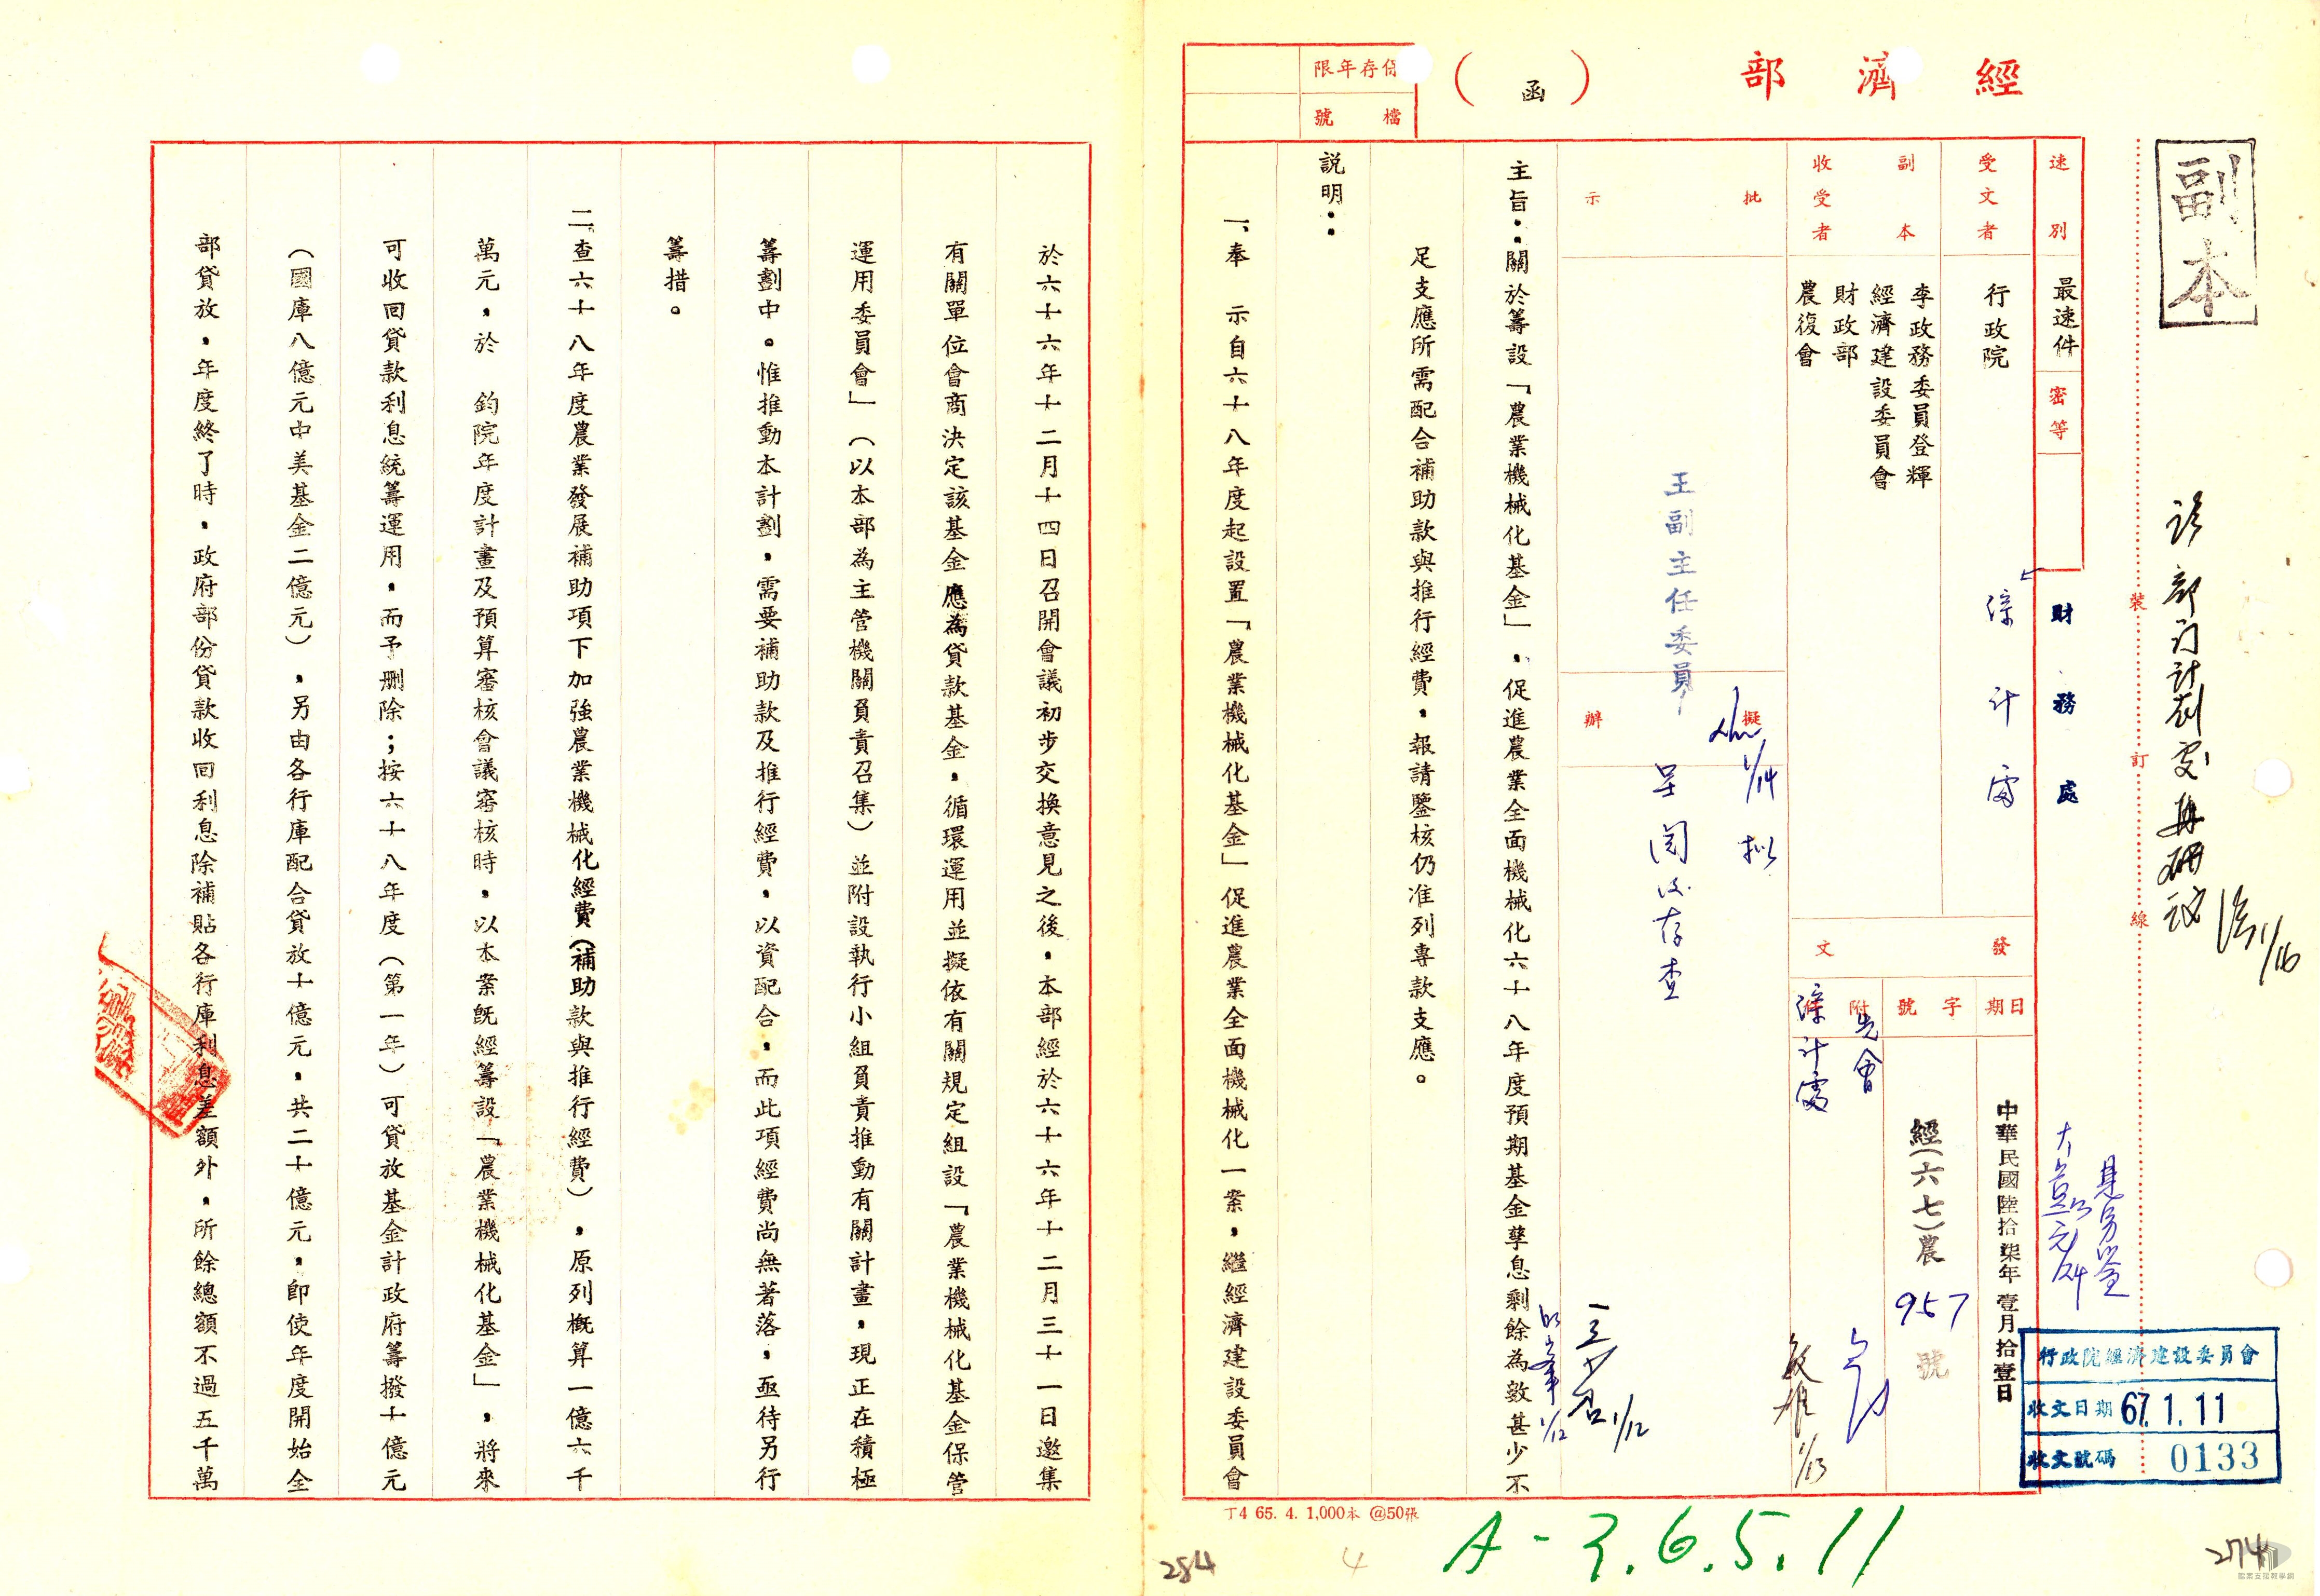 副本
經濟部
（函）
保存年限
檔號
裝
訂
線
速別
最速件
密等
受文者
行政院
副本
收受者
李政務委員登輝
經濟建設委員會
財政部
農復會
財務處
綜計處
發文
日期
中華民國陸拾柒年壹月拾壹日
字號
經（六七）農
957
號
附件
先會
綜計處
批示
王副主任委員
擬辦
1/14
擬
呈閱後存查
主旨：關於籌設「農業機械化基金」，促進農業全面機械化六十八年度預期基金孳息剩餘為數甚少不
足支應所需配合補助款與推行經費，報請鑒核仍准列專款支應。
說明：
一、奉　示自六十八年度起設置「農業機械化基金」促進農業全面機械化一案，繼經濟建設委員會
於六十六年十二月十四日召開會議初步交換意見之後，本部經於六十六年十二月三十一日邀集
有關單位會商決定該基金應為貸款基金，循環運用並擬依有關規定組設「農業機械化基金保管
運用委員會」（以本部為主管機關負責召集）並附設執行小組負責推動有關計畫，現正在積極
籌劃中。惟推動本計劃，需要補助款及推行經費，以資配合，而此項經費尚無著落，亟待另行
籌措。
二、查六十八年度農業發展補助項下加強農業機械化經費（補助款與推行經費），原列概算一億六千
萬元，於　鈞院年度計畫及預算審核會議審核時，以本案旣經籌設「農業機械化基金」，將來
可收回貸款利息統籌運用，而予刪除；按六十八年度（第一年）可貸放基金計政府籌撥十億元
（國庫八億元中美基金二億元），另由各行庫配合貸放十億元，共二十億元，卽使年度開始全
部貸放，年度終了時，政府部份貸款收回利息除補貼各行庫利息差額外，所餘總額不過五千萬
部門計劃處再研議
1/16
1/12
1/12
1/13
行政院經濟建設委員會
收文日期 67.1.11
收文號碼 0133
丁4 65. 4. 1,000本 @50張
A-3.6.5.11
284
4
274
檔案支援教學網